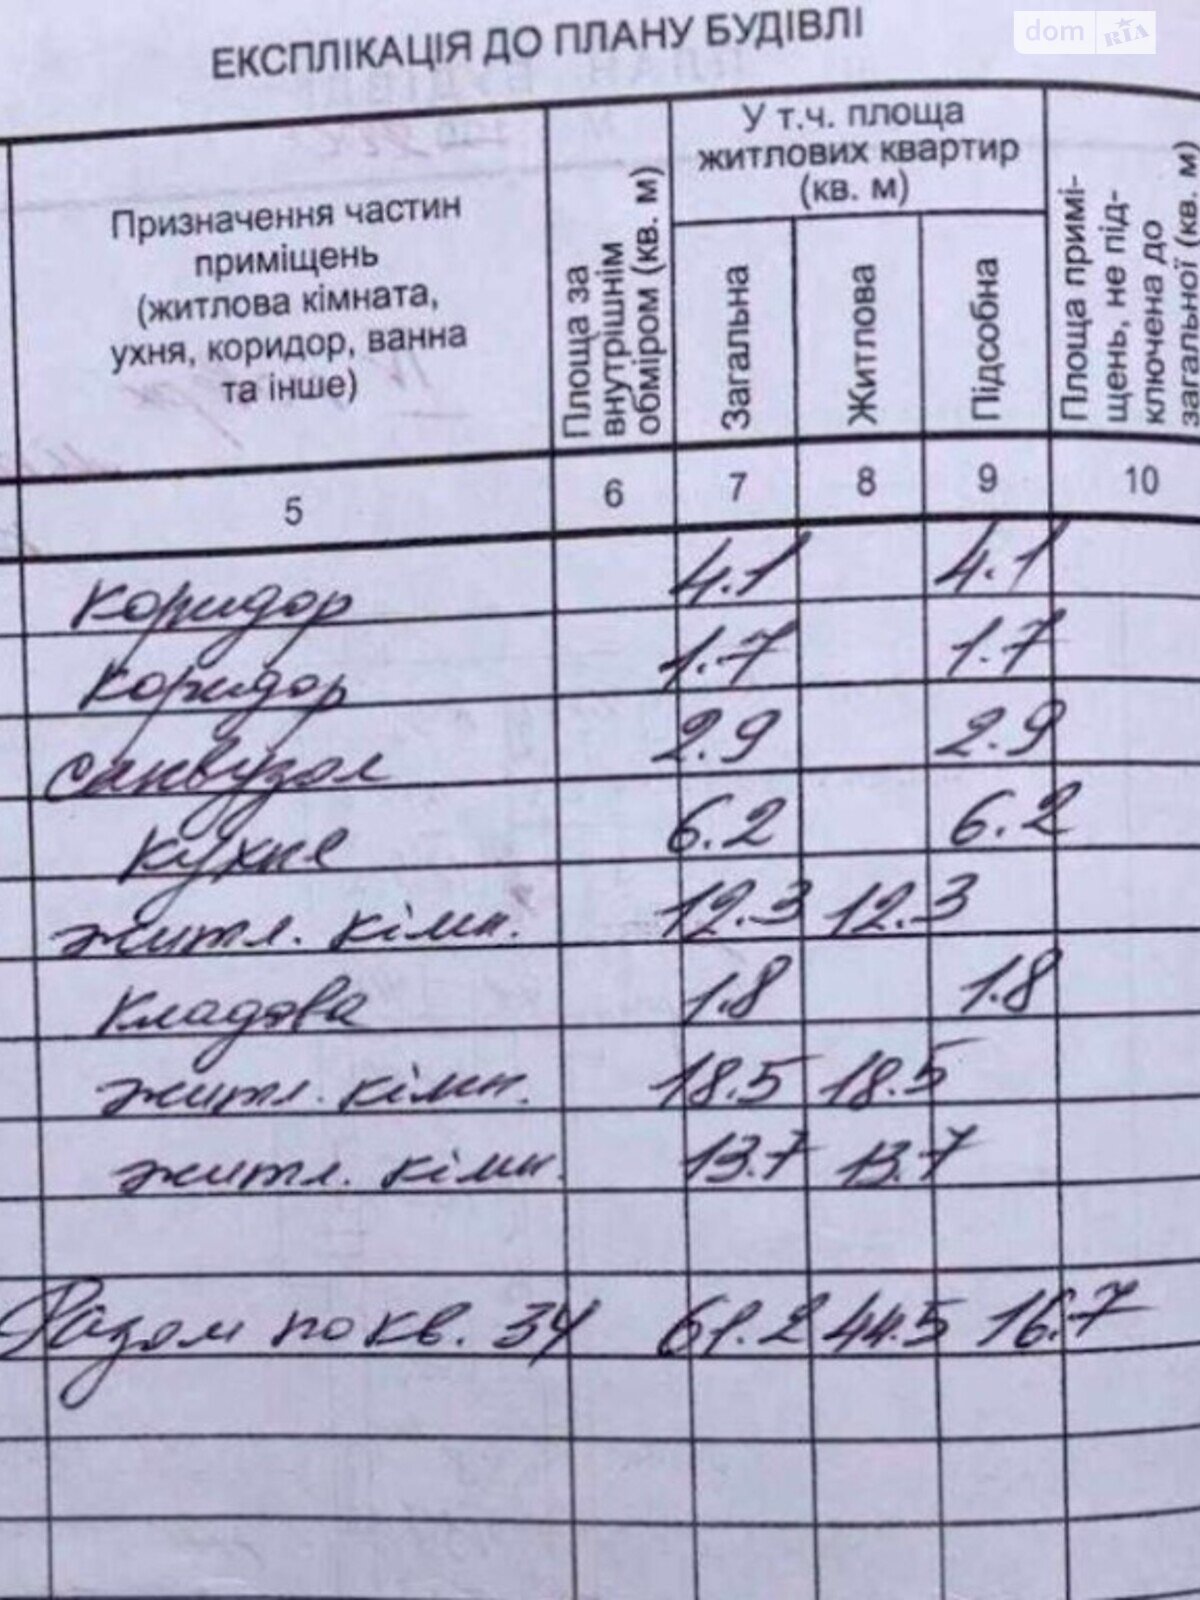 dom RIA
ЕКСПЛІКАЦІЯ ДО ПЛАНУ БУДІВЛІ
Призначення частин
приміщень
(житлова кімната,
ухня, коридор, ванна
та інше)
Площа за
внутрішнім
обміром (кв. м)
У т.ч. площа
житлових квартир
(кв. м)
Загальна
Житлова
Підсобна
Площа примі-
щень, не під-
ключена до
загальної (кв. м)
5 6 7 8 9 10
коридор 4.1 4.1
коридор 1.7 1.7
санвузол 2.9 2.9
кухня 6.2 6.2
житл. кімн. 12.3 12.3
кладова 1.8 1.8
житл. кімн. 18.5 18.5
житл. кімн. 13.7 13.7
Разом по кв. 34 61.2 44.5 16.7